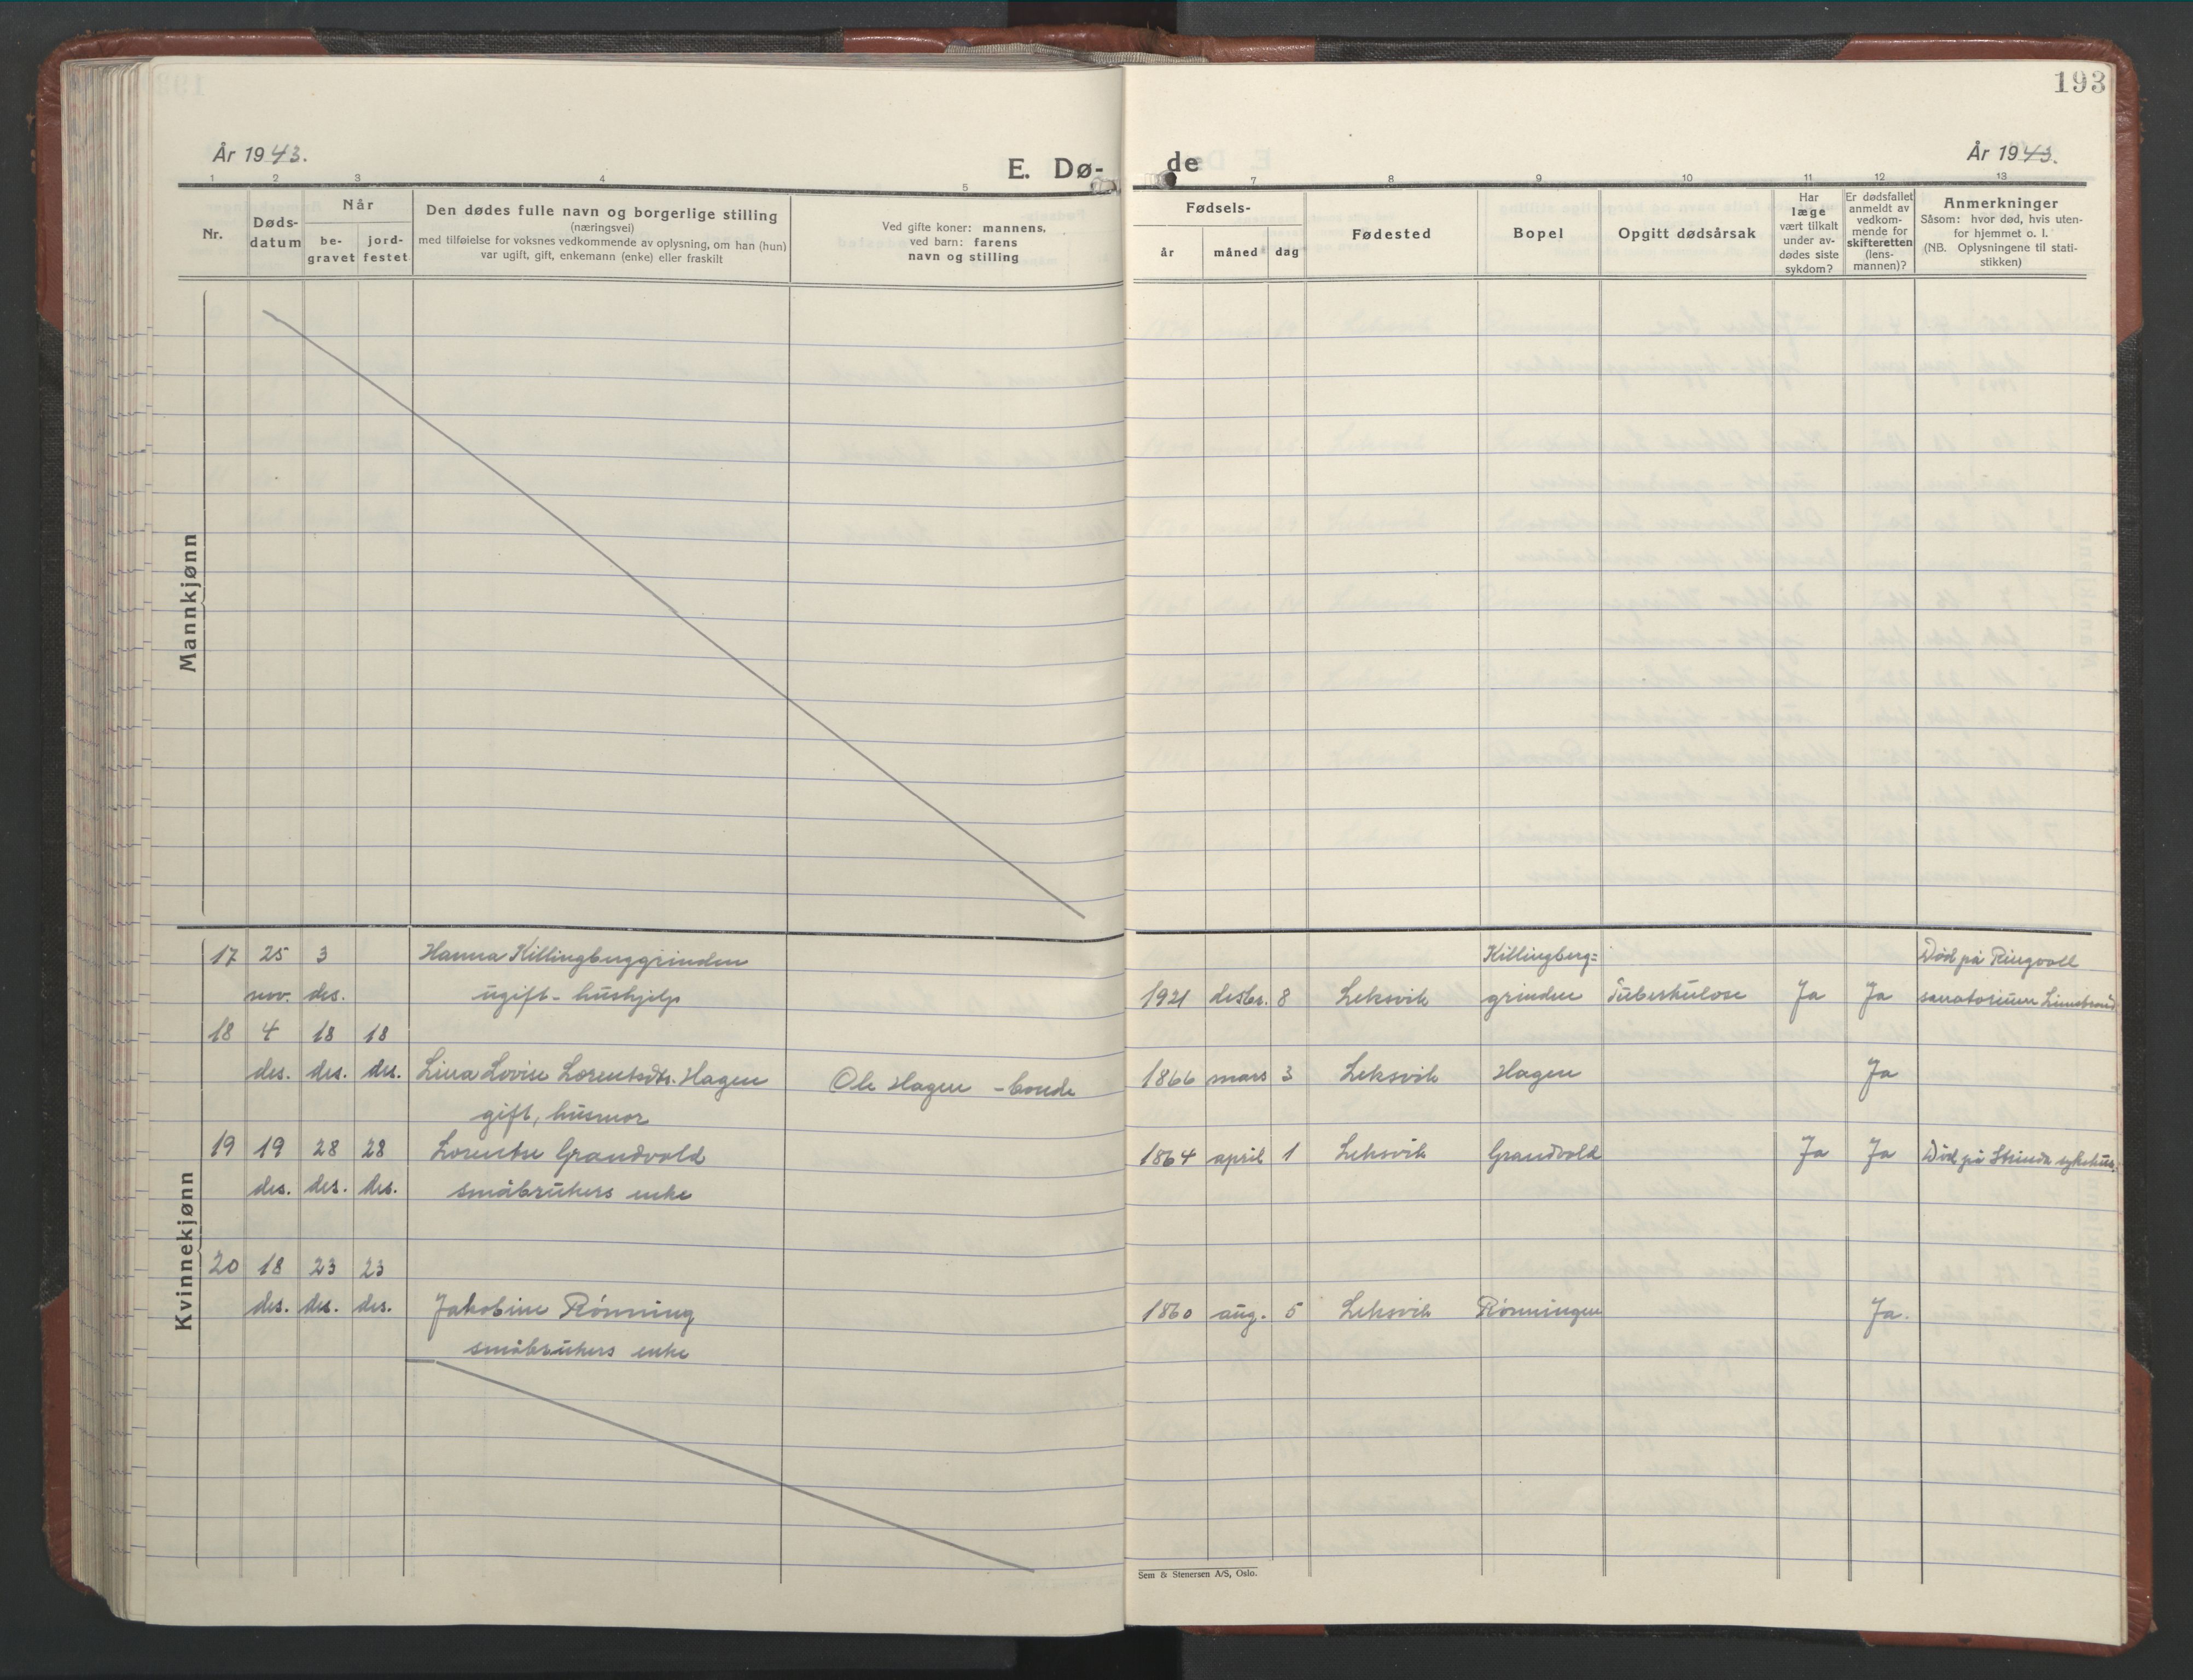 193
År 1943.
E. Dø-
de
År 1943.
1 2 3 4 5 7 8 9 10 11 12 13
Nr.
Døds-
datum
Når
be-
gravet
jord-
festet
Den dødes fulle navn og borgerlige stilling
(næringsvei)
med tilføielse for voksnes vedkommende av oplysning, om han (hun)
var ugift, gift, enkemann (enke) eller fraskilt
Ved gifte koner: mannens,
ved barn: farens
navn og stilling
Fødsels-
år måned dag
Fødested
Bopel
Opgitt dødsårsak
Har
læge
vært tilkalt
under av-
dødes siste
sykdom?
Er dødsfallet
anmeldt av
vedkom-
mende for
skifteretten
(lens-
mannen)?
Anmerkninger
Såsom: hvor død, hvis uten-
for hjemmet o. l.
(NB. Oplysningene til stati-
stikken)
Mannkjønn
Kvinnekjønn
17 25 3 Hanna Killingberggrinden Killingberg= Død på Ringvoll
nov. des. ugift - hushjelp 1921 desbr. 8 Leksvik grinden Tuberkulose Ja Ja sanatorium
18 4 18 18
des. des. des. Lina Lovise Lorentsdtr. Hagen Ole Hagen - bonde 1866 mars 3 Leksvik Hagen Ja
gift, husmor
19 19 28 28 Lorentse Grandvold 1864 april 1 Leksvik Grandvold Ja Ja Død på Strinda sykehus.
des. des. des. småbrukers enke
20 18 23 23
des. des. des. Jakobine Rønning 1860 aug. 5 Leksvik Rønningen Ja.
småbrukers enke
Sem & Stenersen A/S, Oslo.